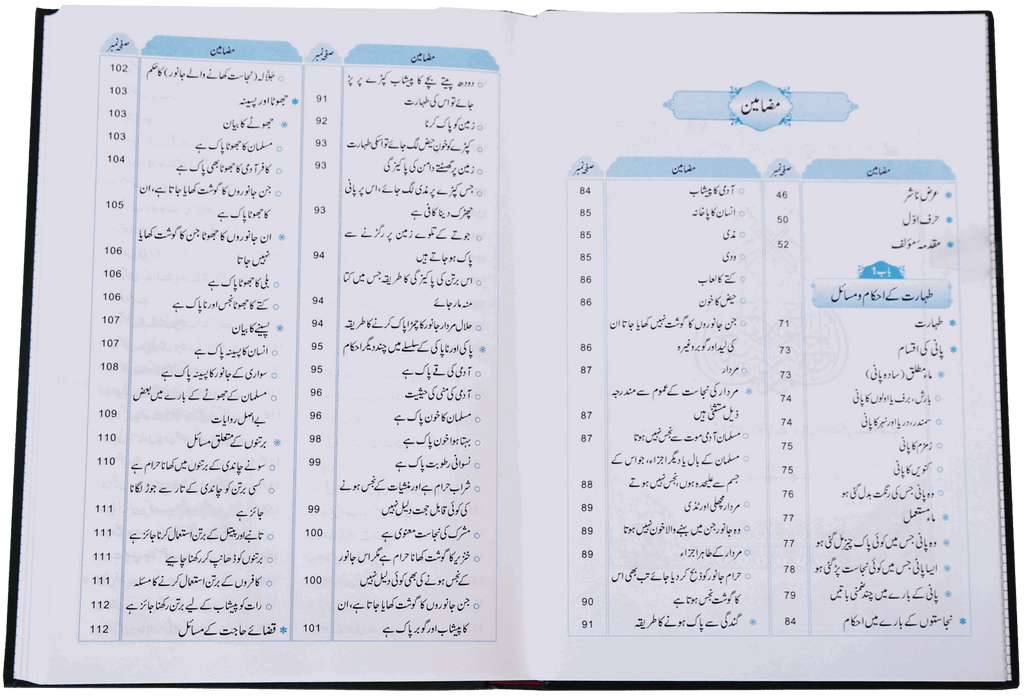 مضامین
مضامین صفحہ نمبر
عرض ناشر 46
حرف اوّل 50
مقدمۂ مؤلف 52
باب 1
طہارت کے احکام و مسائل
طہارت 71
پانی کی اقسام 73
ماء مطلق (سادہ پانی) 73
بارش، برف یا اولوں کا پانی 74
سمندر، دریا اور نہر کا پانی 74
زمزم کا پانی 75
کنویں کا پانی 75
وہ پانی جس کی رنگت بدل گئی ہو 76
ماء مستعمل 77
وہ پانی جس میں کوئی پاک چیز مل گئی ہو 77
ایسا پانی جس میں کوئی نجاست پڑ گئی ہو 78
پانی کے بارے میں چند ضمنی باتیں 79
نجاستوں کے بارے میں احکام 84
مضامین صفحہ نمبر
آدمی کا پیشاب 84
انسان کا پاخانہ 85
مذی 85
ودی 85
کتے کا لعاب 86
حیض کا خون 86
جن جانوروں کا گوشت نہیں کھایا جاتا ان
کی لید اور گوبر وغیرہ 86
مردار 87
مردار کی نجاست کے عموم سے مندرجہ
ذیل مستثنیٰ ہیں 87
مسلمان آدمی موت سے نجس نہیں ہوتا 87
مسلمان کے بال یا دیگر اجزاء، جو اس کے
جسم سے علیحدہ ہوں، نجس نہیں ہوتے 88
مردار مچھلی اور ٹڈی 89
وہ جانور جن میں بہنے والا خون نہیں ہوتا 89
مردار کے طاہر اجزاء 89
حرام جانور کو ذبح کر دیا جائے تب بھی اس
کا گوشت نجس ہوتا ہے 90
گندگی سے پاک ہونے کا طریقہ 91
مضامین صفحہ نمبر
دودھ پیتے بچے کا پیشاب کپڑے پر پڑ
جائے تو اس کی طہارت 91
زمین کو پاک کرنا 92
کپڑے کو خون حیض لگ جائے تو اسکی طہارت 93
زمین پر گھسٹتے دامن کی پاکیزگی 93
جس کپڑے پر مذی لگ جائے، اس پر پانی
چھڑک دینا کافی ہے 93
جوتے کے تلوے زمین پر رگڑنے سے
پاک ہو جاتے ہیں 94
اس برتن کی پاکیزگی کا طریقہ جس میں کتا
منہ مار جائے 94
حلال مردار جانور کا چمڑا پاک کرنے کا طریقہ 94
پاکی اور ناپاکی کے سلسلے میں چند دیگر احکام 95
آدمی کی قے پاک ہے 95
آدمی کی منی کی حیثیت 96
مسلمان کا خون پاک ہے 96
بہتا ہوا خون پاک ہے 98
نسوانی رطوبت پاک ہے 99
شراب حرام ہے اور منشیات کے نجس ہونے
کی کوئی قابل حجت دلیل نہیں 99
مشرک کی نجاست معنوی ہے 100
خنزیر کا گوشت کھانا حرام ہے مگر اس جانور
کے نجس ہونے کی بھی کوئی دلیل نہیں 100
جن جانوروں کا گوشت کھایا جاتا ہے، ان
کا پیشاب اور گوبر پاک ہے 101
مضامین صفحہ نمبر
جلّالہ (نجاست کھانے والے جانور) کا حکم 102
جھوٹا اور پسینہ 103
جھوٹے کا بیان 103
مسلمان کا جھوٹا پاک ہے 103
کافر آدمی کا جھوٹا بھی پاک ہے 104
جن جانوروں کا گوشت کھایا جاتا ہے، ان
کا جھوٹا پاک ہے 105
ان جانوروں کا جھوٹا جن کا گوشت کھایا
نہیں جاتا 106
بلی کا جھوٹا پاک ہے 106
کتے کا جھوٹا نجس اور ناپاک ہے 106
پسینے کا بیان 107
انسان کا پسینہ پاک ہے 107
سواری کے جانور کا پسینہ پاک ہے 108
مسلمان کے جھوٹے کے بارے میں بعض
بے اصل روایات 109
برتنوں کے متعلق مسائل 110
سونے چاندی کے برتنوں میں کھانا حرام ہے 110
کسی برتن کو چاندی کے تار سے جوڑ لگانا
جائز ہے 111
تانبے اور پیتل کے برتن استعمال کرنا جائز ہے 111
برتنوں کو ڈھانپ کر رکھنا چاہیے 111
کافروں کے برتن استعمال کرنے کا مسئلہ 111
رات کو پیشاب کے لیے برتن رکھنا جائز ہے 112
قضائے حاجت کے مسائل 112